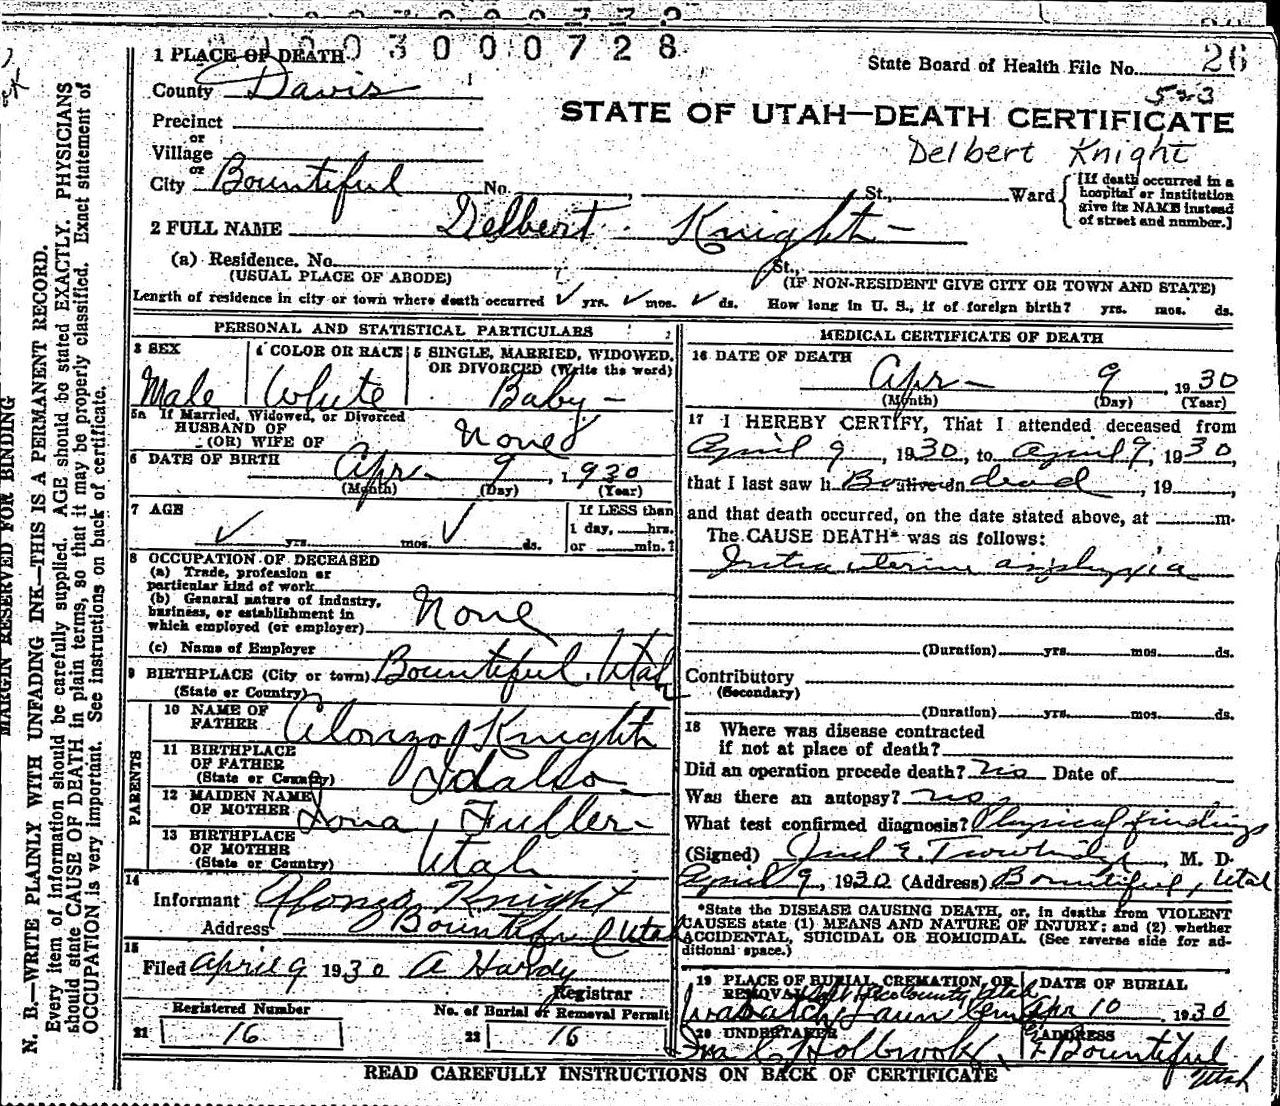 0030000728
1 PLACE OF DEATH
State Board of Health File No. 26
County Davis
523
STATE OF UTAH—DEATH CERTIFICATE
Precinct
or
Delbert Knight
Village
or
City Bountiful No. , St., Ward
[If death occurred in a hospital or institution give its NAME instead of street and number.]
2 FULL NAME Delbert Knight
(a) Residence. No. St.,
(USUAL PLACE OF ABODE) (IF NON-RESIDENT GIVE CITY OR TOWN AND STATE)
Length of residence in city or town where death occurred ✓ yrs. ✓ mos. ✓ ds. How long in U. S., if of foreign birth? yrs. mos. ds.
PERSONAL AND STATISTICAL PARTICULARS
3 SEX 4 COLOR OR RACE 5 SINGLE, MARRIED, WIDOWED,
OR DIVORCED (Write the word)
Male White Baby
5a If Married, Widowed, or Divorced
HUSBAND OF
(OR) WIFE OF None
6 DATE OF BIRTH Apr 9, 1930
(Month) (Day) (Year)
7 AGE If LESS than
1 day, hrs.
✓ yrs. mos. ✓ ds. or min.?
8 OCCUPATION OF DECEASED
(a) Trade, profession or
particular kind of work
(b) General nature of industry,
business, or establishment in
which employed (or employer) None
(c) Name of Employer
9 BIRTHPLACE (City or town) Bountiful, Utah
(State or Country)
PARENTS
10 NAME OF
FATHER Alonzo Knight
11 BIRTHPLACE
OF FATHER Idaho
(State or Country)
12 MAIDEN NAME
OF MOTHER Lona Fuller
13 BIRTHPLACE
OF MOTHER Utah
(State or Country)
14
Informant Alonzo Knight
Address Bountiful Utah
15
Filed April 9 1930 A Hardy
Registrar
Registered Number No. of Burial or Removal Permit
21 16 22 16
MEDICAL CERTIFICATE OF DEATH
16 DATE OF DEATH
Apr 9, 1930
(Month) (Day) (Year)
17 I HEREBY CERTIFY, That I attended deceased from
April 9, 1930, to April 9, 1930,
that I last saw h Born alive on dead, 19 ,
and that death occurred, on the date stated above, at m.
The CAUSE DEATH* was as follows:
Intra uterine asphyxia
(Duration) yrs. mos. ds.
Contributory
(Secondary)
(Duration) yrs. mos. ds.
18 Where was disease contracted
if not at place of death?
Did an operation precede death? no Date of
Was there an autopsy? no
What test confirmed diagnosis? Physical findings
(Signed) E. Trowbridge, M. D.
April 9, 1930 (Address) Bountiful, Utah
*State the DISEASE CAUSING DEATH, or, in deaths from VIOLENT
CAUSES state (1) MEANS AND NATURE OF INJURY; and (2) whether
ACCIDENTAL, SUICIDAL OR HOMICIDAL. (See reverse side for ad-
ditional space.)
19 PLACE OF BURIAL CREMATION, OR DATE OF BURIAL
REMOVAL Salt Lake County Utah
Wasatch Lawn Cem Apr 10 1930
20 UNDERTAKER ADDRESS
Ira C Holbrook E Bountiful
Utah
READ CAREFULLY INSTRUCTIONS ON BACK OF CERTIFICATE
MARGIN RESERVED FOR BINDING
N. B.—WRITE PLAINLY WITH UNFADING INK—THIS IS A PERMANENT RECORD.
Every item of information should be carefully supplied. AGE should be stated EXACTLY. PHYSICIANS
should state CAUSE OF DEATH in plain terms, so that it may be properly classified. Exact statement of
OCCUPATION is very important. See instructions on back of certificate.